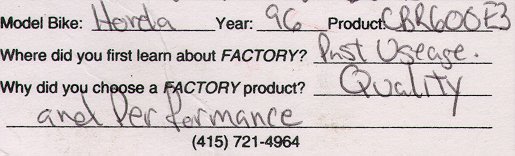 Model Bike: Honda Year: 96 Product: CBR600F3
Where did you first learn about FACTORY? Past Useage.
Why did you choose a FACTORY product? Quality
and Performance
(415) 721-4964